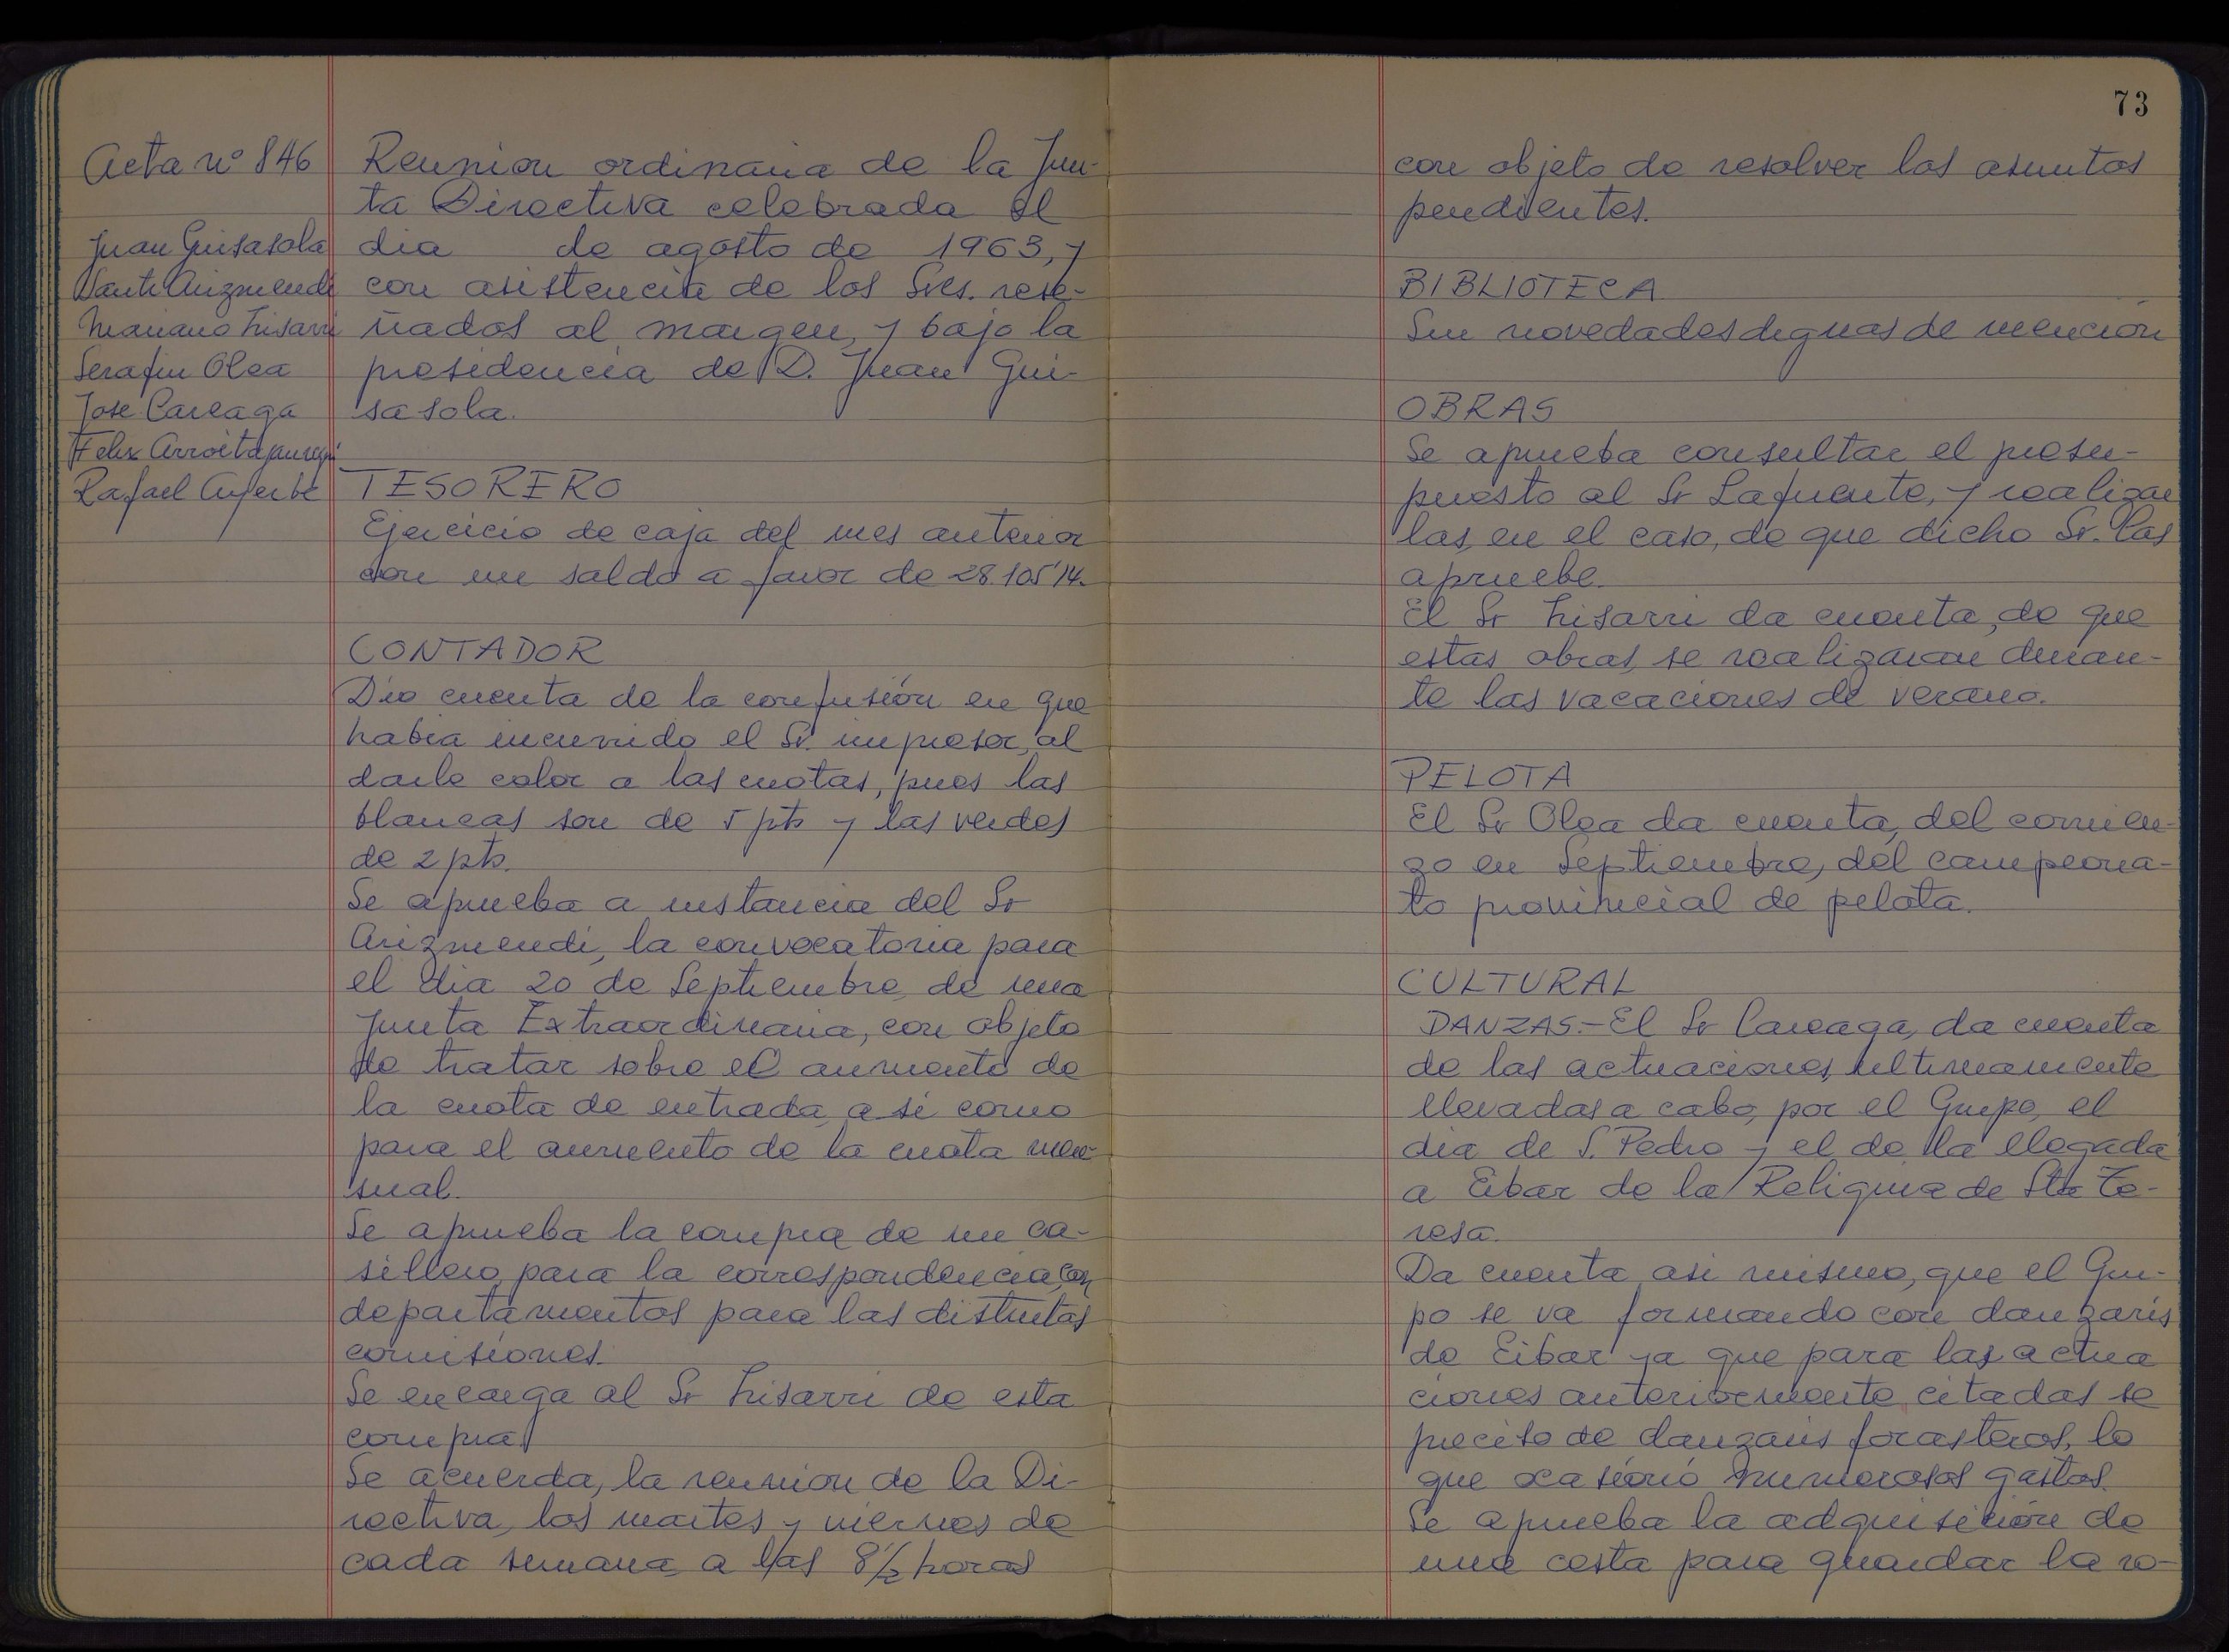 Acta nº 846
Juan Guisasola
Dante Arizmendi
Mariano Lisarri
Serafin Olea
Jose Careaga
Felix Arroitajauregi
Rafael
Reunion ordinaria de la Jun-
ta Directiva celebrada el
dia de agosto de 1963, y
con asistencia de los Sres. rese-
ñados al margen, y bajo la
presidencia de D. Juan Gui-
sasola.
TESORERO
Ejercicio de caja del mes anterior
con un saldo a favor de 28.105'14.
CONTADOR
Dio cuenta de la confusión en que
habia incurrido el Sr. impresor, al
darle color a las cuotas, pues las
blancas son de 5 pts y las verdes
de 2 pts.
Se aprueba a instancia del Sr
Arizmendi, la convocatoria para
el dia 20 de Septiembre, de una
Junta Extraordinaria, con objeto
de tratar sobre el aumento de
la cuota de entrada, a si como
para el aumento de la cuota men-
sual.
Se aprueba la compra de un ca-
sillero, para la correspondencia, con
departamentos para las distintas
comisiones.
Se encarga al Sr Lisarri de esta
compra.
Se acuerda, la reunion de la Di-
rectiva, los martes y viernes de
cada semana, a las 8 1/2 horas
73
con objeto de resolver los asuntos
pendientes.
BIBLIOTECA
Sin novedades dignas de mención
OBRAS
Se aprueba consultar el presu-
puesto al Sr Lafuente, y realizar
las, en el caso, de que dicho Sr. las
apruebe.
El Sr Lisarri da cuenta, de que
estas obras, se realizaran duran-
te las vacaciones de verano.
PELOTA
El Sr Olea da cuenta, del comien-
zo en Septiembre, del campeona-
to provincial de pelota.
CULTURAL
DANZAS.- El Sr Careaga, da cuenta
de las actuaciones, ultimamente
llevadas a cabo, por el Grupo, el
dia de S. Pedro y el de la llegada
a Eibar de la Reliquia de Sta Te-
resa.
Da cuenta, asi mismo, que el Gru-
po se va formando con danzaris
de Eibar ya que para las actua
ciones anteriormente citadas se
preciso de danzaris forasteros, lo
que ocasionó numerosos gastos.
Se aprueba la adquisición de
una cesta para guardar la ro-